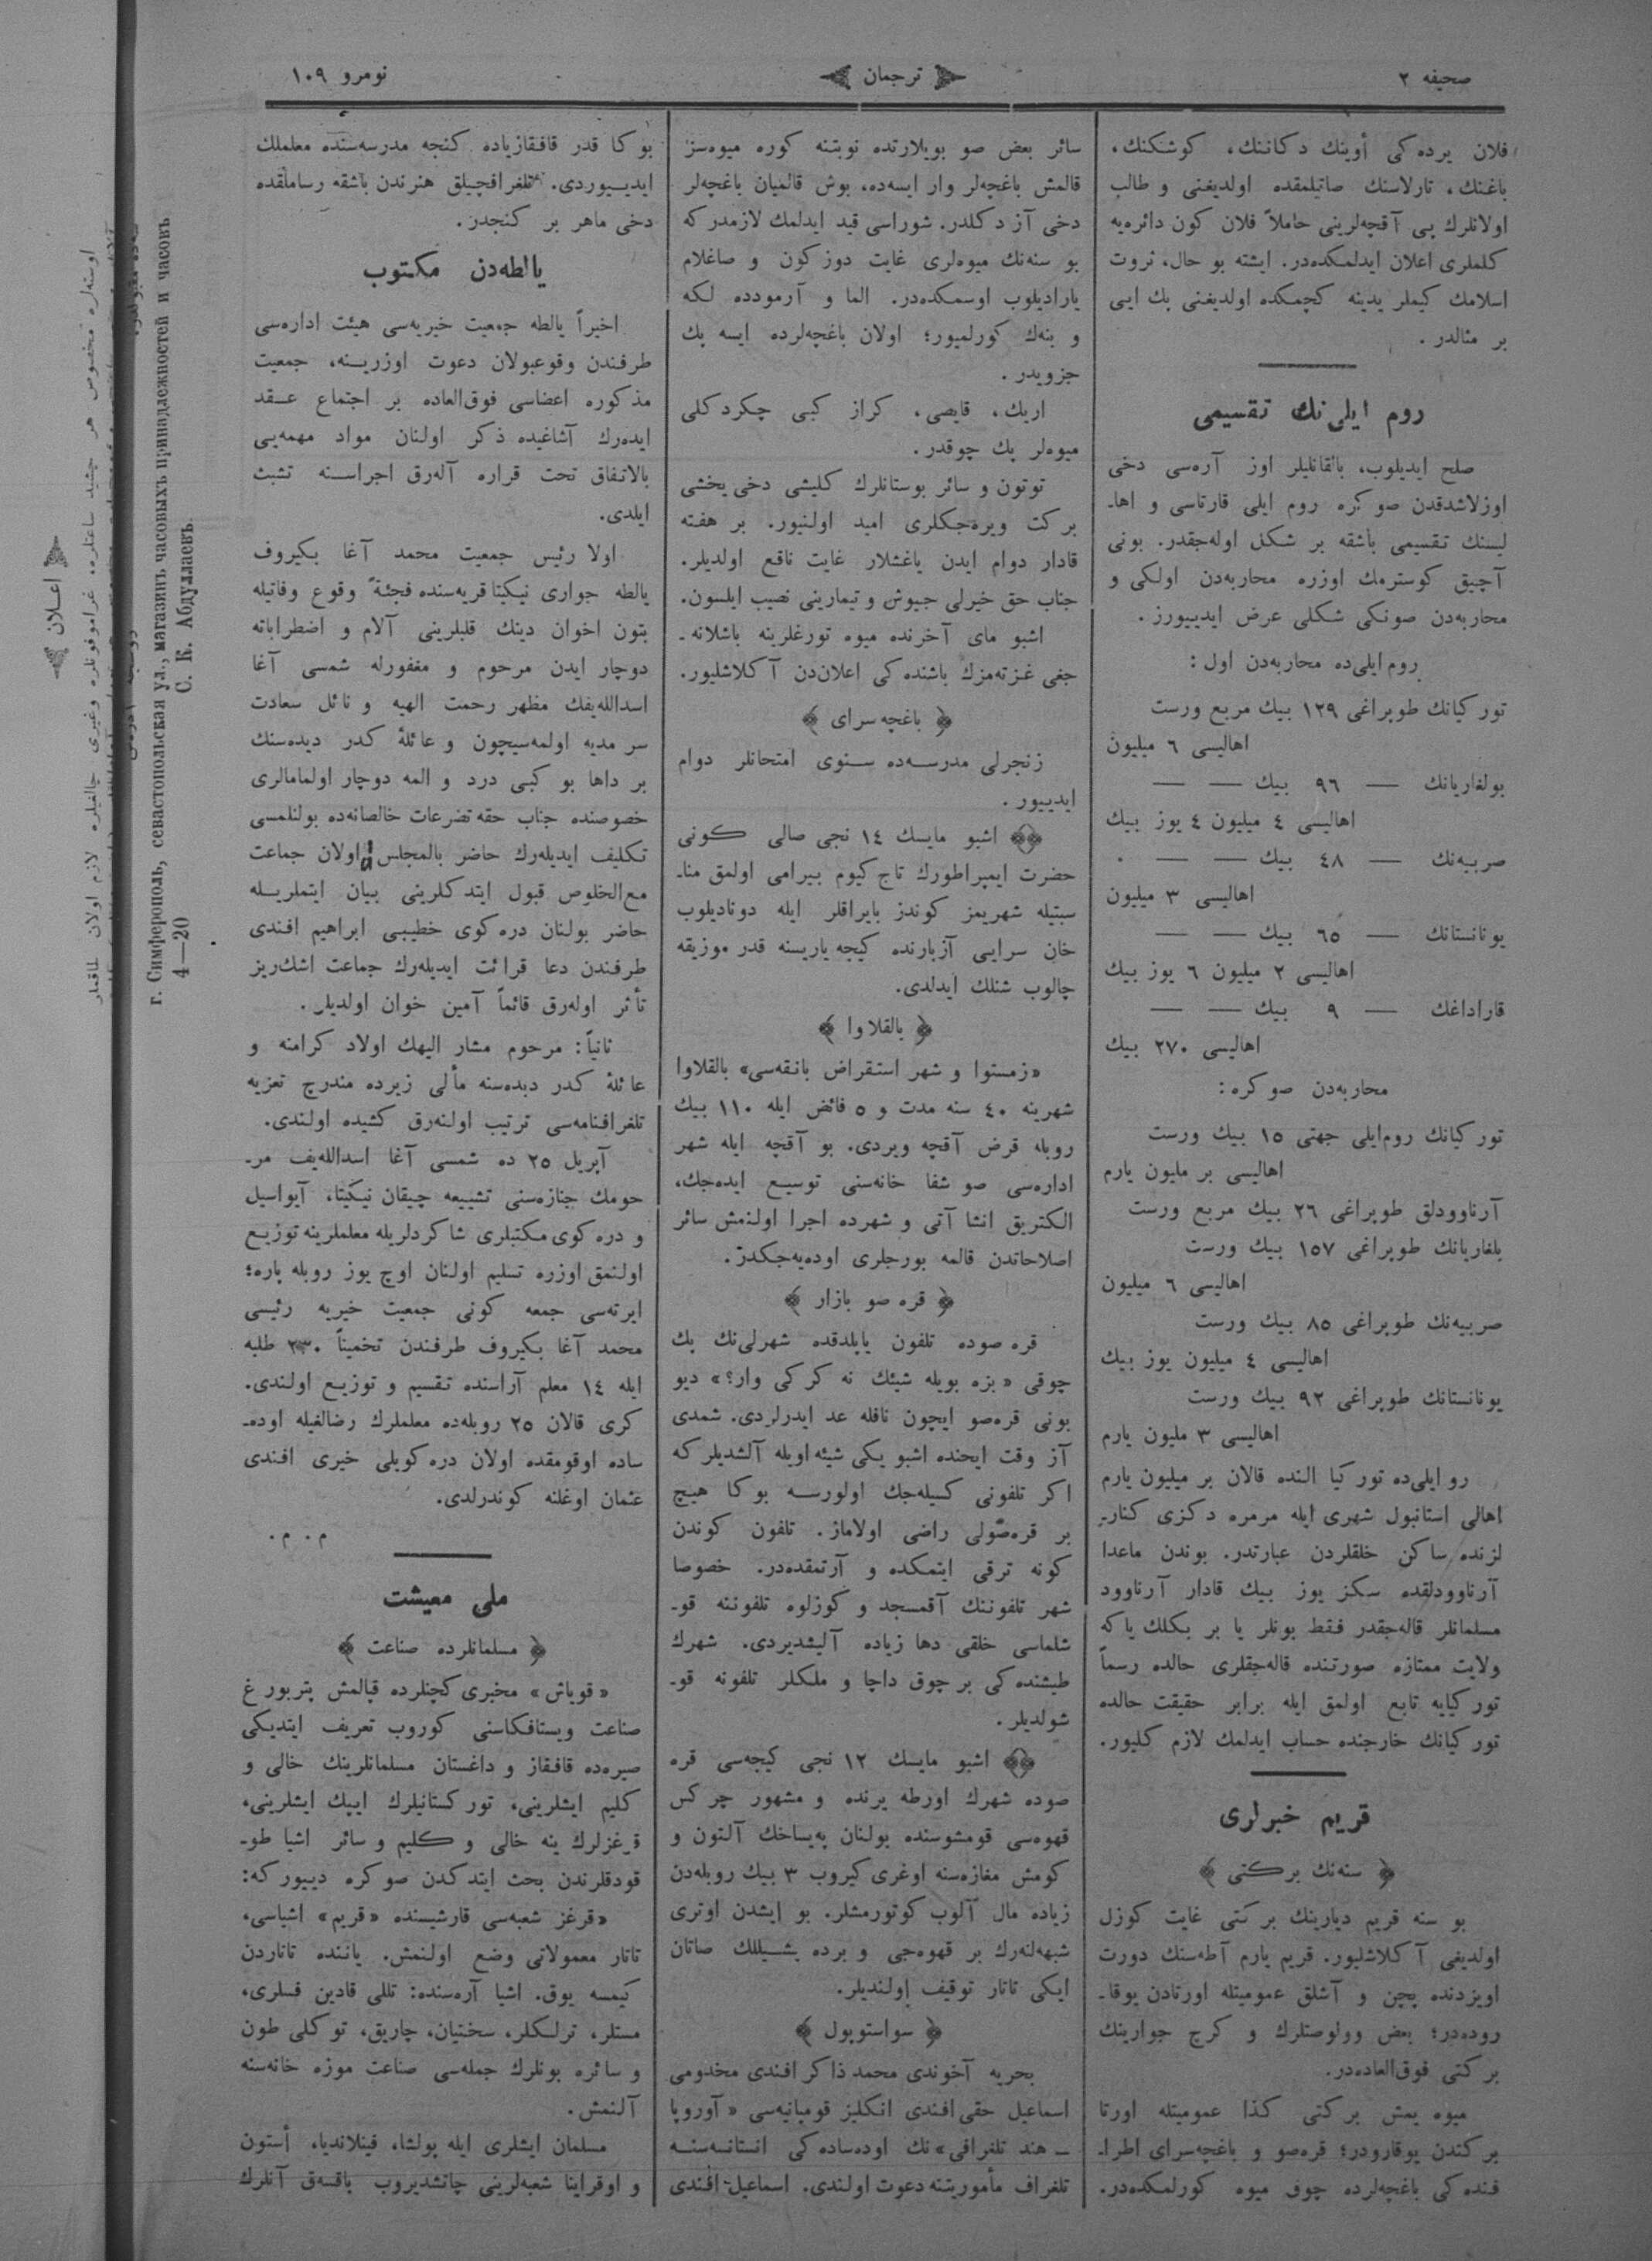 صحيفه ٢
ترجمان
نومرو ١٠٩
فلان يرده‌كى أوينك دكاننك، كوشكنك،
باغنك، تارلاسنك صاتيلمقده اولديغنى و طالب
اولانلرك پى آقچه‌لرينى حاملاً فلان كون دائره‌يه
كلملرى اعلان ايدلمكده‌در. ايشته بو حال، ثروت
اسلامك كيملر يدينه كچمكده اولديغنى پك ايى
بر مثالدر.
روم ايلى‌نك تقسيمى
صلح ايديلوب، بالقانليلر اوز آره‌سى دخى
اوزلاشدقدن صوكره روم ايلى قارتاسى و اها-
ليسنك تقسيمى باشقه بر شكل اوله‌جقدر. بونى
آچيق كوسترمك اوزره محاربه‌دن اولكى و
محاربه‌دن صونكى شكلى عرض ايدييورز.
روم‌ايلى‌ده محاربه‌دن اول:
توركيانك طوپراغى ١٢٩ بيك مربع ورست
اهاليسى ٦ ميليون
بولغاريانك — ٩٦ بيك — —
اهاليسى ٤ ميليون ٤ يوز بيك
صربيه‌نك — ٤٨ بيك — —
اهاليسى ٣ ميليون
يونانستانك — ٦٥ بيك — —
اهاليسى ٢ ميليون ٦ يوز بيك
قاراداغك — ٩ بيك — —
اهاليسى ٢٧٠ بيك
محاربه‌دن صوكره:
توركيانك روم‌ايلى جهتى ١٥ بيك ورست
اهاليسى بر مليون يارم
آرناوودلق طوپراغى ٢٦ بيك مربع ورست
بلغاريانك طوپراغى ١٥٧ بيك ورست
اهاليسى ٦ ميليون
صربيه‌نك طوپراغى ٨٥ بيك ورست
اهاليسى ٤ ميليون يوز بيك
يونانستانك طوپراغى ٩٢ بيك ورست
اهاليسى ٣ مليون يارم
رو ايلى‌ده توركيا النده قالان بر ميليون يارم
اهالى استانبول شهرى ايله مرمره دكزى كنار-
لرنده ساكن خلقلردن عبارتدر. بوندن ماعدا
آرناوودلقده سكز يوز بيك قادار آرناوود
مسلمانلر قاله‌جقدر فقط بونلر يا بر بكلك ياكه
ولايت ممتازه صورتنده قاله‌جقلرى حالده رسماً
توركيايه تابع اولمق ايله برابر حقيقت حالده
توركيانك خارجنده حساب ايدلمك لازم كليور.
قريم خبرلرى
﴿ سنه‌نك بركتى ﴾
بو سنه قريم ديارينك بركتى غايت كوزل
اولديغى آكلاشليور. قريم يارم آطه‌سنك دورت
اويزدنده پچن و آشلق عموميتله اورتادن يوقا-
روده‌در؛ بعض وولوصتلرك و كرچ جوارينك
بركتى فوق‌العاده‌در.
ميوه يمش بركتى كذا عموميتله اورتا
بركتدن يوقارودر؛ قره‌صو و باغچه‌سراى اطرا-
فنده‌كى باغچه‌لرده چوق ميوه كورلمكده‌در.
سائر بعض صو بويلارنده نوبتنه كوره ميوه‌سز
قالمش باغچه‌لر وار ايسه‌ده، بوش قالميان باغچه‌لر
دخى آز دكلدر. شوراسى قيد ايدلمك لازمدركه
بو سنه‌نك ميوه‌لرى غايت دوزكون و صاغلام
ياراديلوب اوسمكده‌در. الما و آرموددە لكه
و ينه‌ك كورلميور؛ اولان باغچه‌لرده ايسه پك
جزويدر.
اريك، قايصى، كراز كبى چكردكلى
ميوه‌لر پك چوقدر.
توتون و سائر بوستانلرك كليشى دخى يخشى
بركت ويره‌جكلرى اميد اولنيور. بر هفته
قادار دوام ايدن ياغشلار غايت نافع اولديلر.
جناب حق خيرلى جيوش و تيمارينى نصيب ايلسون.
اشبو ماى آخرنده ميوه تورغلرينه باشلانه-
جغى غزته‌مزك باشنده‌كى اعلان‌دن آكلاشليور.
﴿ باغچه سراى ﴾
زنجرلى مدرسه‌ده سنوى امتحانلر دوام
ايدييور.
اشبو مايسك ١٤ نجى صالى كونى
حضرت ايمپراطورك تاج كيوم بيرامى اولمق منا-
سبتيله شهريمز كوندز بايراقلر ايله دوناديلوب
خان سرايى آزبارنده كيجه ياريسنه قدر موزيقه
چالوب شنلك ايدلدى.
﴿ بالقلاوا ﴾
«زمستوا و شهر استقراض بانقه‌سى» بالقلاوا
شهرينه ٤٠ سنه مدت و ٥ فائض ايله ١١٠ بيك
روبله قرض آقچه ويردى. بو آقچه ايله شهر
اداره‌سى صو شفا خانه‌سنى توسيع ايده‌جك،
الكتريق انشا آتى و شهرده اجرا اولنمش سائر
اصلاحاتدن قالمه بورجلرى اوده‌يه‌جكدر.
﴿ قره صو بازار ﴾
قره صوده تلفون ياپلدقده شهرلى‌نك پك
چوقى «بزه بويله شيئك نه كركى وار؟» ديو
بونى قره‌صو ايچون نافله عد ايدرلردى. شمدى
آز وقت ايچنده اشبو يكى شيئه اويله آلشديلر كه
اكر تلفونى كسيله‌جك اولورسه بوكا هيچ
بر قره‌صولى راضى اولاماز. تلفون كوندن
كونه ترقى ايتمكده و آرتمقده‌در. خصوصا
شهر تلفوننك آقمسجد و كوزلوه تلفوننه قو-
شلماسى خلقى دها زياده آليشديردى. شهرك
طيشنده‌كى بر چوق داچا و ملكلر تلفونه قو-
شولديلر.
اشبو مايسك ١٢ نجى كيجه‌سى قره
صوده شهرك اورطه يرنده و مشهور چركس
قهوه‌سى قومشوسنده بولنان پەيساخك آلتون و
كومش مغازه‌سنه اوغرى كيروب ٣ بيك روبله‌دن
زياده مال آلوب كوتورمشلر. بو ايشدن اوترى
شبهه‌لنه‌رك بر قهوه‌جى و برده يشيللك صاتان
ايكى تاتار توقيف اولنديلر.
﴿ سواستوپول ﴾
بحريه آخوندى محمد ذاكر افندى مخدومى
اسماعيل حقى افندى انكليز قومپانيه‌سى «آوروپا
ـ هند تلغرافى»نك اوده‌ساده‌كى انستانسه‌سنه
تلغراف مأموريتنه دعوت اولندى. اسماعيل افندى
بوكا قدر قافقازياده كنجه مدرسه‌سنده معلملك
ايدييوردى. تلغرافچيلق هنرندن باشقه رساملقده
دخى ماهر بر كنجدر.
يالطه‌دن مكتوب
اخيراً يالطه جمعيت خيريه‌سى هيئت اداره‌سى
طرفندن وقوعبولان دعوت اوزرينه، جمعيت
مذكوره اعضاسى فوق‌العاده بر اجتماع عقد
ايده‌رك آشاغيده ذكر اولنان مواد مهمه‌يى
بالاتفاق تحت قراره آله‌رق اجراسنه تشبث
ايلدى.
اولا رئيس جمعيت محمد آغا بكيروف
يالطه جوارى نيكيتا قريه‌سنده فجئةً وقوع وفاتيله
بتون اخوان دينك قلبلرينى آلام و اضطراباته
دوچار ايدن مرحوم و مغفورله شمسى آغا
اسدالله‌يفك مظهر رحمت الهيه و نائل سعادت
سرمديه اولمه‌سيچون و عائلهٔ كدر ديده‌سنك
بر داها بو كبى درد و المه دوچار اولمامالرى
خصوصنده جناب حقه تضرعات خالصانه‌ده بولنلمسى
تكليف ايديله‌رك حاضر بالمجلس اولان جماعت
مع‌الخلوص قبول ايتدكلرينى بيان ايتملريله
حاضر بولنان دره‌كوى خطيبى ابراهيم افندى
طرفندن دعا قرائت ايديله‌رك جماعت اشك‌ريز
تأثر اوله‌رق قائماً آمين خوان اولديلر.
ثانياً: مرحوم مشار اليهك اولاد كرامنه و
عائلهٔ كدر ديده‌سنه مألى زيرده مندرج تعزيه
تلغرافنامه‌سى ترتيب اولنه‌رق كشيده اولندى.
آپريل ٢٥ ده شمسى آغا اسدالله‌يف مر-
حومك جنازه‌سنى تشييعه چيقان نيكيتا، آيواسيل
و دره كوى مكتبلرى شاكردلريله معلملرينه توزيع
اولنمق اوزره تسليم اولنان اوچ يوز روبله پاره؛
ايرته‌سى جمعه كونى جمعيت خيريه رئيسى
محمد آغا بكيروف طرفندن تخميناً ٢٣٠ طلبه
ايله ١٤ معلم آراسنده تقسيم و توزيع اولندى.
كرى قالان ٢٥ روبله‌ده معلملرك رضالغيله اوده-
ساده اوقومقده اولان دره‌كويلى خيرى افندى
عثمان اوغلنه كوندرلدى.
م. م.
ملى معيشت
﴿ مسلمانلرده صناعت ﴾
«قوياش» مخبرى كچنلرده قپالمش پتربورغ
صناعت ويستافكاسنى كوروب تعريف ايتديكى
صيره‌ده قافقاز و داغستان مسلمانلرينك خالى و
كليم ايشلرينى، توركستانيلرك ايپك ايشلرينى،
قرغزلرك ينه خالى و كليم و سائر اشيا طو-
قودقلرندن بحث ايتدكدن صوكره دييوركه:
«قرغز شعبه‌سى قارشيسنده «قريم» اشياسى،
تاتار معمولاتى وضع اولنمش. ياننده تاتاردن
كيمسه يوق. اشيا آره‌سنده: تللى قادين فسلرى،
مستلر، ترلكلر، سختيان، چاريق، توكلى طون
و سائره بونلرك جمله‌سى صناعت موزه خانه‌سنه
آلنمش.
مسلمان ايشلرى ايله پولشا، فينلانديا، أستون
و اوقراينا شعبه‌لرينى چاتشديروب باقسه‌ق آنلرك
اعلان
اوسته‌لره مخصوص هر چشيد ساعتلره، غراموفونلره وغيرى چالغيلره لازم اولان طاقملر
г. Симферополь, севастопольская ул., магазинъ часовыхъ принадлежностей и часовъ
С. К. Абдуллаевъ.
4—20